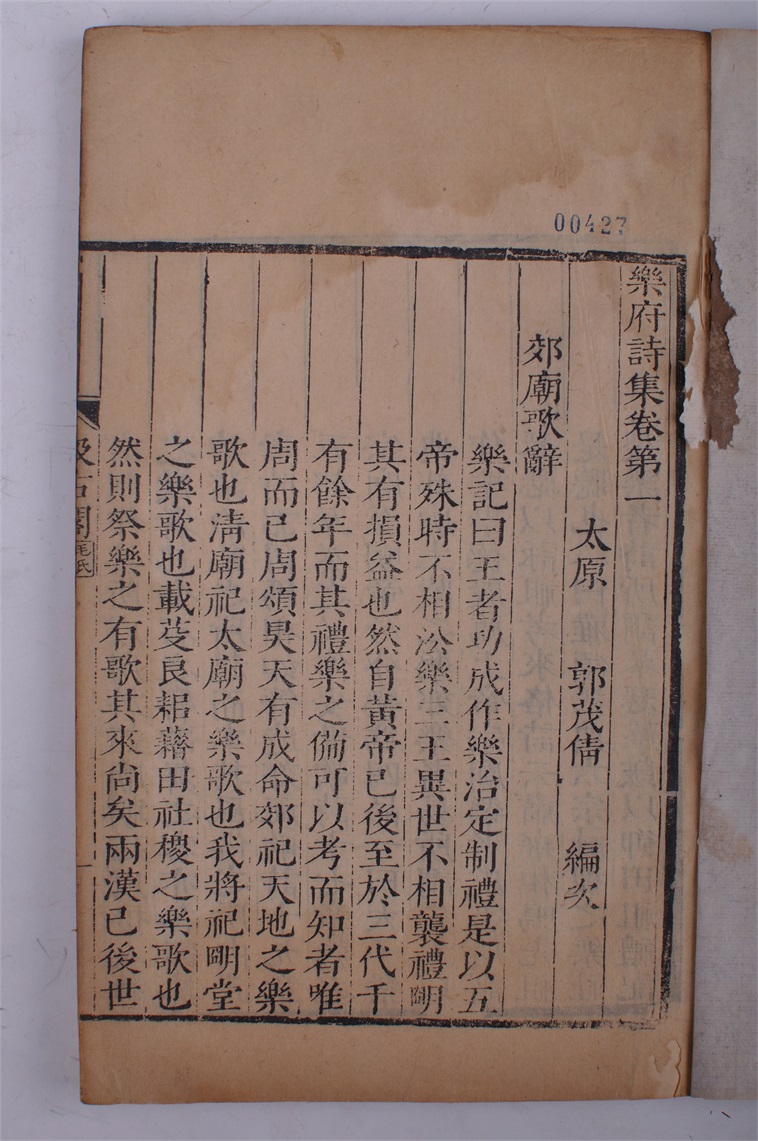 00427
樂府詩集卷第一
太原 郭茂倩 編次
郊廟歌辭
樂記曰王者功成作樂治定制禮是以五
帝殊時不相㳂樂三王異世不相襲禮明
其有損益也然自黃帝已後至於三代千
有餘年而其禮樂之備可以考而知者唯
周而已周頌昊天有成命郊祀天地之樂
歌也清廟祀太廟之樂歌也我將祀明堂
之樂歌也載芟良耜藉田社稷之樂歌也
然則祭樂之有歌其來尚矣兩漢已後世
汲古閣
毛氏
一